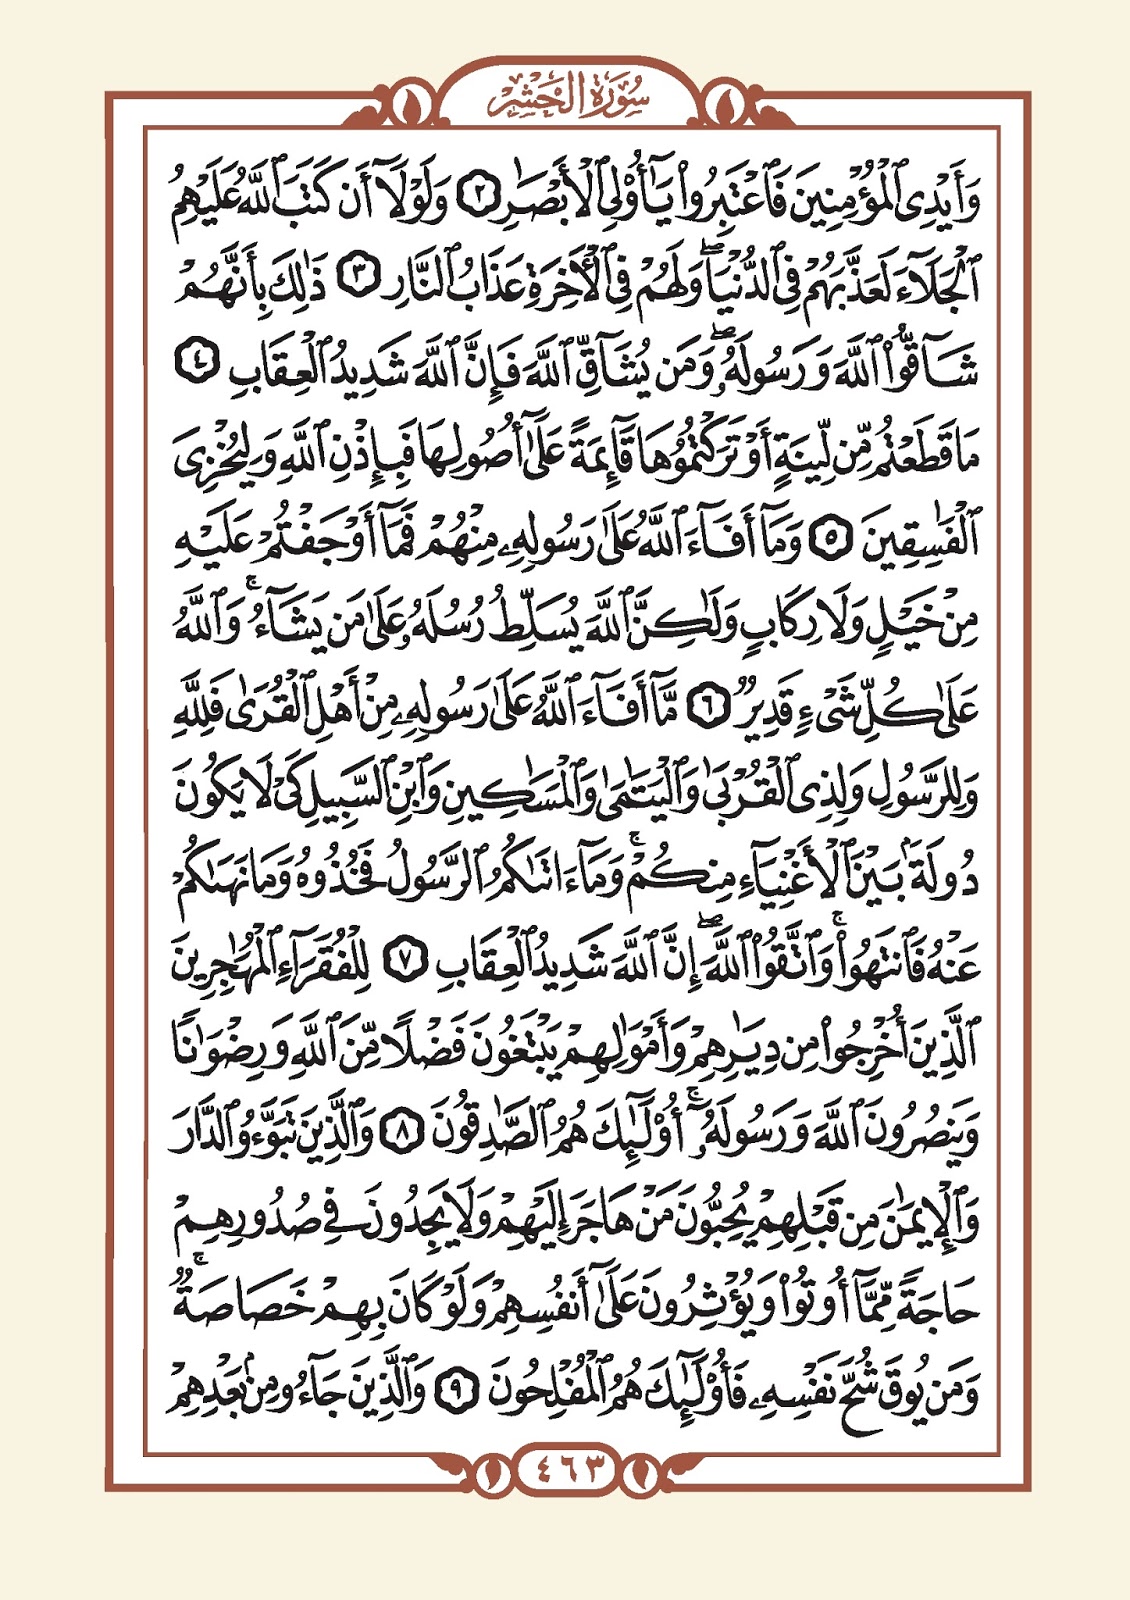 سُورَةُ الحَشْرِ
وَأَيْدِى ٱلْمُؤْمِنِينَ فَٱعْتَبِرُوا۟ يَـٰٓأُو۟لِى ٱلْأَبْصَـٰرِ ٢ وَلَوْلَآ أَن كَتَبَ ٱللَّهُ عَلَيْهِمُ
ٱلْجَلَآءَ لَعَذَّبَهُمْ فِى ٱلدُّنْيَا ۖ وَلَهُمْ فِى ٱلْـَٔاخِرَةِ عَذَابُ ٱلنَّارِ ٣ ذَٰلِكَ بِأَنَّهُمْ
شَآقُّوا۟ ٱللَّهَ وَرَسُولَهُۥ ۖ وَمَن يُشَآقِّ ٱللَّهَ فَإِنَّ ٱللَّهَ شَدِيدُ ٱلْعِقَابِ ٤
مَا قَطَعْتُم مِّن لِّينَةٍ أَوْ تَرَكْتُمُوهَا قَآئِمَةً عَلَىٰٓ أُصُولِهَا فَبِإِذْنِ ٱللَّهِ وَلِيُخْزِىَ
ٱلْفَـٰسِقِينَ ٥ وَمَآ أَفَآءَ ٱللَّهُ عَلَىٰ رَسُولِهِۦ مِنْهُمْ فَمَآ أَوْجَفْتُمْ عَلَيْهِ
مِنْ خَيْلٍ وَلَا رِكَابٍ وَلَـٰكِنَّ ٱللَّهَ يُسَلِّطُ رُسُلَهُۥ عَلَىٰ مَن يَشَآءُ ۚ وَٱللَّهُ
عَلَىٰ كُلِّ شَىْءٍ قَدِيرٌ ٦ مَّآ أَفَآءَ ٱللَّهُ عَلَىٰ رَسُولِهِۦ مِنْ أَهْلِ ٱلْقُرَىٰ فَلِلَّهِ
وَلِلرَّسُولِ وَلِذِى ٱلْقُرْبَىٰ وَٱلْيَتَـٰمَىٰ وَٱلْمَسَـٰكِينِ وَٱبْنِ ٱلسَّبِيلِ كَىْ لَا يَكُونَ
دُولَةًۢ بَيْنَ ٱلْأَغْنِيَآءِ مِنكُمْ ۚ وَمَآ ءَاتَىٰكُمُ ٱلرَّسُولُ فَخُذُوهُ وَمَا نَهَىٰكُمْ
عَنْهُ فَٱنتَهُوا۟ ۚ وَٱتَّقُوا۟ ٱللَّهَ ۖ إِنَّ ٱللَّهَ شَدِيدُ ٱلْعِقَابِ ٧ لِلْفُقَرَآءِ ٱلْمُهَـٰجِرِينَ
ٱلَّذِينَ أُخْرِجُوا۟ مِن دِيَـٰرِهِمْ وَأَمْوَٰلِهِمْ يَبْتَغُونَ فَضْلًا مِّنَ ٱللَّهِ وَرِضْوَٰنًا
وَيَنصُرُونَ ٱللَّهَ وَرَسُولَهُۥٓ ۚ أُو۟لَـٰٓئِكَ هُمُ ٱلصَّـٰدِقُونَ ٨ وَٱلَّذِينَ تَبَوَّءُو ٱلدَّارَ
وَٱلْإِيمَـٰنَ مِن قَبْلِهِمْ يُحِبُّونَ مَنْ هَاجَرَ إِلَيْهِمْ وَلَا يَجِدُونَ فِى صُدُورِهِمْ
حَاجَةً مِّمَّآ أُوتُوا۟ وَيُؤْثِرُونَ عَلَىٰٓ أَنفُسِهِمْ وَلَوْ كَانَ بِهِمْ خَصَاصَةٌ ۚ
وَمَن يُوقَ شُحَّ نَفْسِهِۦ فَأُو۟لَـٰٓئِكَ هُمُ ٱلْمُفْلِحُونَ ٩ وَٱلَّذِينَ جَآءُو مِنۢ بَعْدِهِمْ
٤٦٣